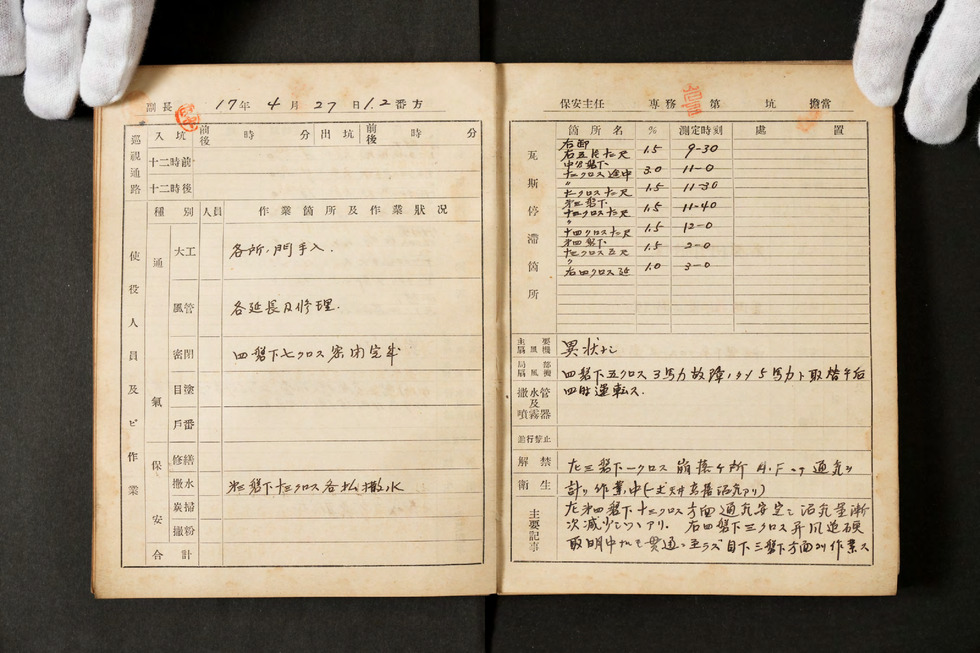 副長 17年 4月 27日 1.2番方
巡視通路 入坑 前後 時 分 出坑 前後 時 分
十二時前
十二時後
種別 人員 作業箇所及作業狀况
使役人員及ビ作業
通氣
大工 各所、門手入.
風管 各延長及修理.
密閉 四盤下七クロス密閉完半
目塗
戶番
保安
修繕
撒水 第三盤下十三クロス各払撒水
炭掃
撒粉
合計
保安主任 專務 第 坑 擔當
瓦斯停滯箇所
箇所名 % 測定時刻 處置
右卸
右五片十尺 1.5 9-30
中分盤下
十一クロス途中 3.0 11-0
〃
七クロス十尺 1.5 11-30
第三盤下
十四クロス十尺 1.5 11-40
〃
十四クロス十尺 1.5 12-0
第四盤下
十三クロス五尺 1.5 2-0
〃
右四クロス延 1.0 3-0
主要扇風機 異狀ナシ
局部扇風機 四盤下五クロス3馬力故障ノタメ5馬力ト取替午后
四時運転ス.
撒水管及噴霧器
進行禁止
解禁 左三盤下一クロス崩落ケ所 通気ヲ
衛生 計リ作業中
主要記事 左第四盤下十三クロス方面通気安定シ沼気量漸
次減少シツヽアリ. 右四盤下三クロス昇風道硬
取明中ナルモ貫通ニ至ラズ目下三盤下方面ヨリ作業ス